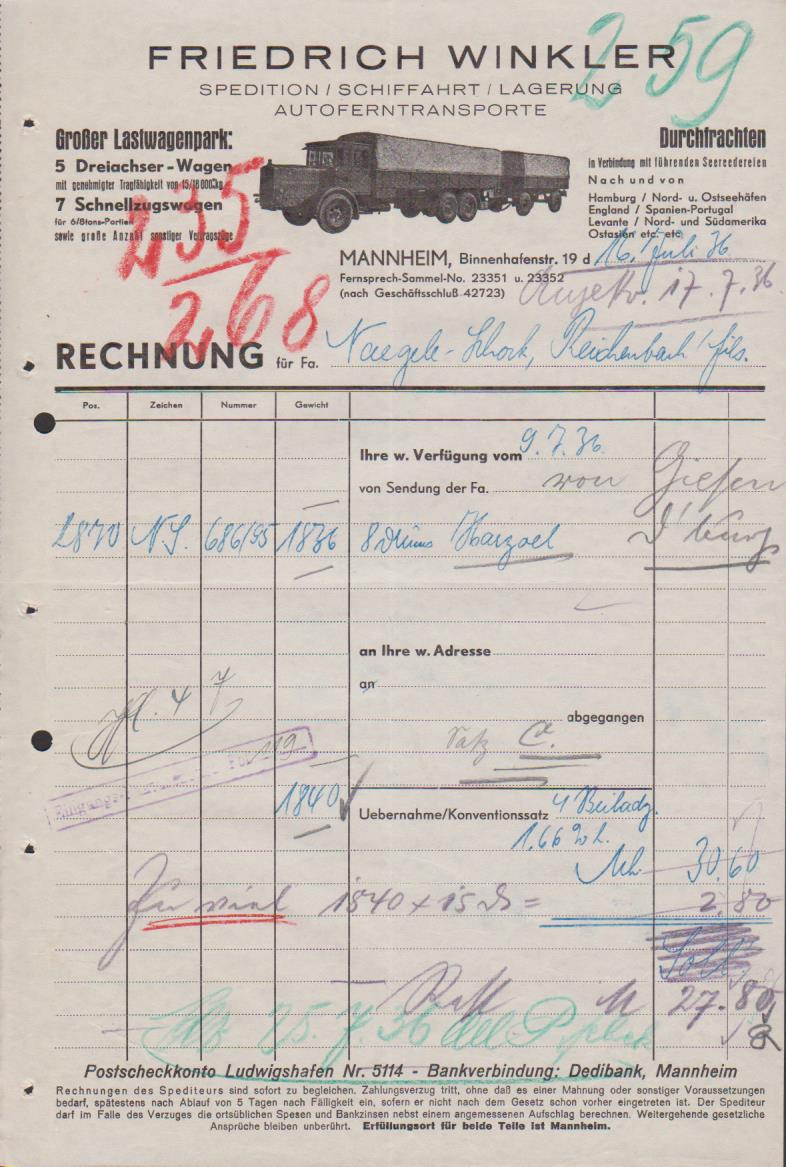 259
FRIEDRICH WINKLER
SPEDITION / SCHIFFAHRT / LAGERUNG
AUTOFERNTRANSPORTE
Großer Lastwagenpark:
5 Dreiachser-Wagen
mit genehmigter Tragfähigkeit von 15/18000kg
7 Schnellzugswagen
für 6/8tons-Partien
sowie große Anzahl sonstiger Vertragszüge
235
268
Durchfrachten
in Verbindung mit führenden Seereedereien
Nach und von
Hamburg / Nord- u. Ostseehäfen
England / Spanien-Portugal
Levante / Nord- und Südamerika
Ostasien etc. etc.
MANNHEIM, Binnenhafenstr. 19 d 16. Juli 36
Fernsprech-Sammel-No. 23351 u. 23352
(nach Geschäftsschluß 42723) 17.7.36
RECHNUNG für Fa. Naegele-Schock, Reichenbach/Fils.
Pos. Zeichen Nummer Gewicht
Ihre w. Verfügung vom 9.7.36
von Sendung der Fa. von Giesen
2870 N.S. 686/95 1836 8 Drums Harzoel D'burg
an Ihre w. Adresse
an
abgegangen
119
1840
Uebernahme/Konventionssatz 4 Beiladg.
1.66
Mk. 30.60
Zu viel 1840 x 15 = 2.80
Soll
M 27.80
25.7.36
Postscheckkonto Ludwigshafen Nr. 5114 - Bankverbindung: Dedibank, Mannheim
Rechnungen des Spediteurs sind sofort zu begleichen. Zahlungsverzug tritt, ohne daß es einer Mahnung oder sonstiger Voraussetzungen
bedarf, spätestens nach Ablauf von 5 Tagen nach Fälligkeit ein, sofern er nicht nach dem Gesetz schon vorher eingetreten ist. Der Spediteur
darf im Falle des Verzuges die ortsüblichen Spesen und Bankzinsen nebst einem angemessenen Aufschlag berechnen. Weitergehende gesetzliche
Ansprüche bleiben unberührt. Erfüllungsort für beide Teile ist Mannheim.